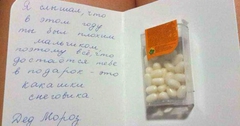 Я слышал, что
в этом году
ты был плохим
мальчиком,
поэтому всё, что
достаётся тебе
в подарок - это
какашки
снеговика
Дед Мороз